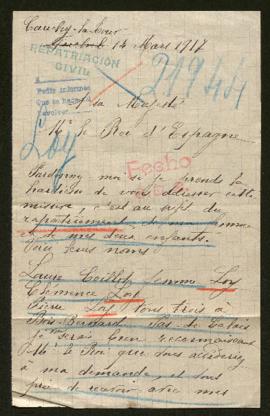 Cauchy-la-Tour
14 Mars 1917
REPATRIACIÓN
CIVIL
21944
Pedir informes
Que se haga
devolver
Sa Majesté
Mr le Roi d'Espagne
Loy
Fecho
Pardonnez moi si je prends la
hardiesse de vous adresser cette
missive, c'est au sujet du
rapatriement de ma femme
et de mes deux enfants.
Voici leurs noms
Laure femme Loy
Clémence Loy
Pierre Loy tous trois à
Bois-Bernard Pas-de-Calais
Je serais bien reconnaissant
Mr le Roi que vous accédiez
à ma demande, et vous
prie de recevoir avec mes